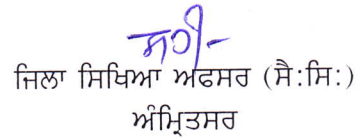 ਸਹੀ/-
ਜਿਲਾ ਸਿਖਿਆ ਅਫਸਰ (ਸੈ:ਸਿ:)
ਅੰਮ੍ਰਿਤਸਰ